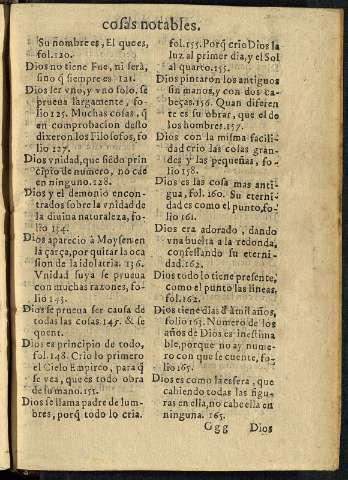 cosas notables.
Su nombre es, El que es,
fol. 120.
Dios no tiene Fue, ni serà,
sino q̃ siempre es 121.
Dios ser vno, y vno solo, se
prueua largamente, fo-
lio 125. Muchas cosas, q̃
en comprobacion desto
dixeron los Filosofos, fo
lio 127.
Dios vnidad, que siẽdo prin
cipio de numero, no cae
en ninguno. 128.
Dios y el demonio encon-
trados sobre la vnidad de
la diuina naturaleza, fo-
lio 134.
Dios aparecio à Moysen en
la çarça, por quitar la oca
sion de la idolatria. 136.
Vnidad suya se prueua
con muchas razones, fo-
lio 143.
Dios se prueua ser causa de
todas las cosas. 145. & se
quent.
Dios es principio de todo,
fol. 148. Crio lo primero
el Cielo Empireo, para q̃
se vea, que es todo obra
de su mano. 151.
Dios se llama padre de lum-
bres, porq̃ todo lo cria.
fol. 155. Porq̃ crio Dios la
luz al primer dia, y el Sol
al quarto. 155.
Dios pintaron los antiguos
sin manos, y con dos ca-
beças. 156. Quan diferen
te es su obrar, que el de
los hombres. 157.
Dios con la misma facili-
dad crio las cosas gran-
des y las pequeñas, fo-
lio 158.
Dios es las cosa mas anti-
gua, fol. 160. Su eterni-
dad es como el punto, fo-
lio 161.
Dios era adorado, dando
vna buelta a la redonda,
confessando su eterni-
dad. 162.
Dios todo lo tiene presente,
como el punto las lineas.
fol. 162.
Dios tiene dias d̃ à mil años,
folio 163. Numero de los
años de Dios es inestima
ble, porque no ay nume-
ro con que se cuente, fo-
lio 165.
Dios es como la esfera, que
cabiendo todas las figu-
ras en ella, no cabe ella en
ninguna. 165.
Ggg Dios